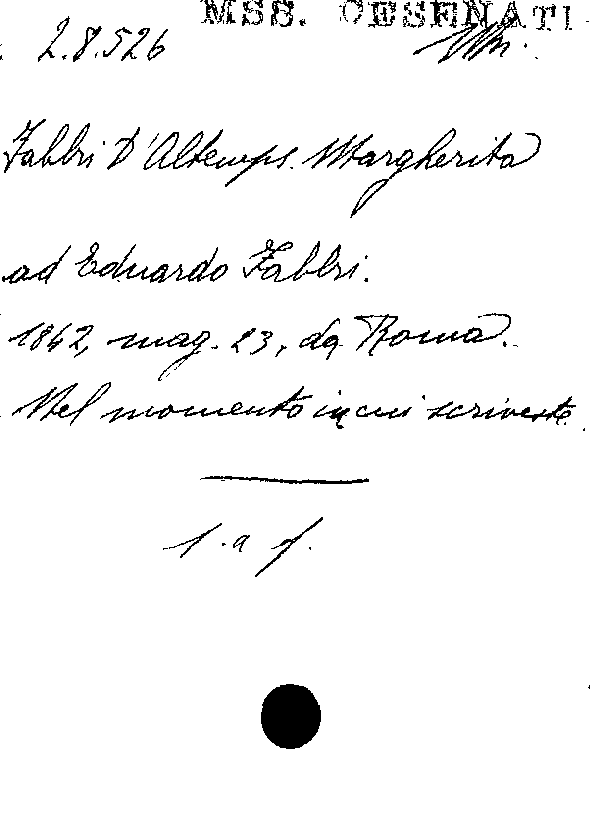 MSS. CESENATI
2.8.526
Fabbri D'Altemps. Margherita
ad Eduardo Fabbri.
1842, mag. 23, da Roma.
Nel momento in cui scriveste.
l. a f.